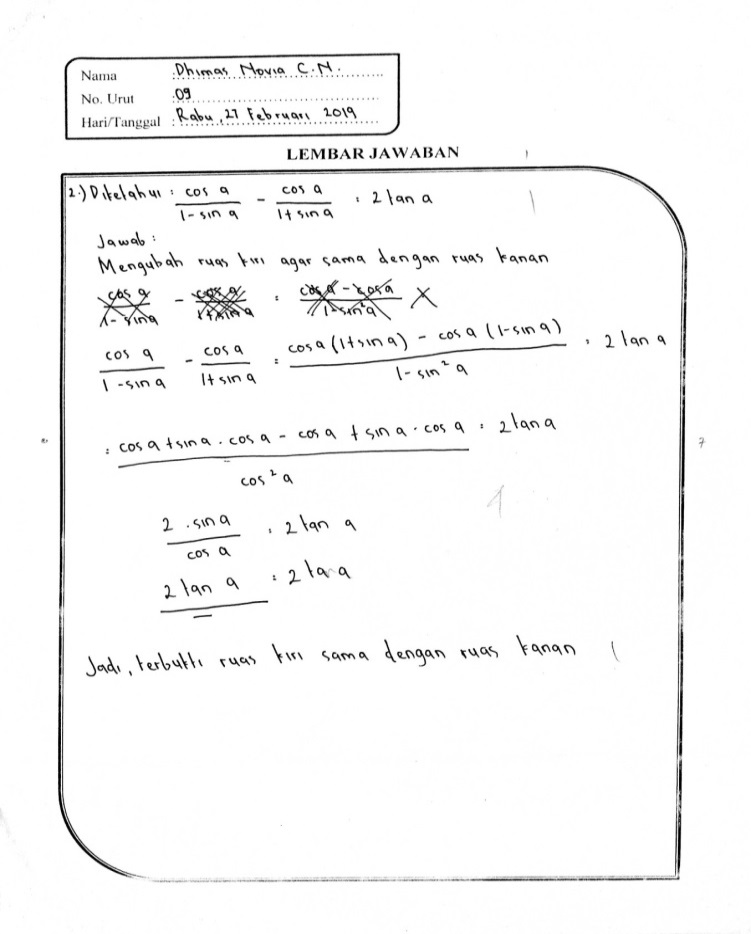 Nama : Dhimas Novia C.N.
No. Urut : 09
Hari/Tanggal : Rabu, 27 Februari 2019
LEMBAR JAWABAN
2.) Diketahui : cos a / 1 - sin a - cos a / 1 + sin a = 2 tan a
Jawab :
Mengubah ruas kiri agar sama dengan ruas kanan
cos a / 1 - sin a - cos a / 1 + sin a = cos a - cos a / 1 - sin² a
cos a / 1 - sin a - cos a / 1 + sin a = cos a (1 + sin a) - cos a (1 - sin a) / 1 - sin² a = 2 tan a
= cos a + sin a . cos a - cos a + sin a . cos a / cos² a = 2 tan a
2 . sin a / cos a = 2 tan a
2 tan a = 2 tan a
Jadi, terbukti ruas kiri sama dengan ruas kanan